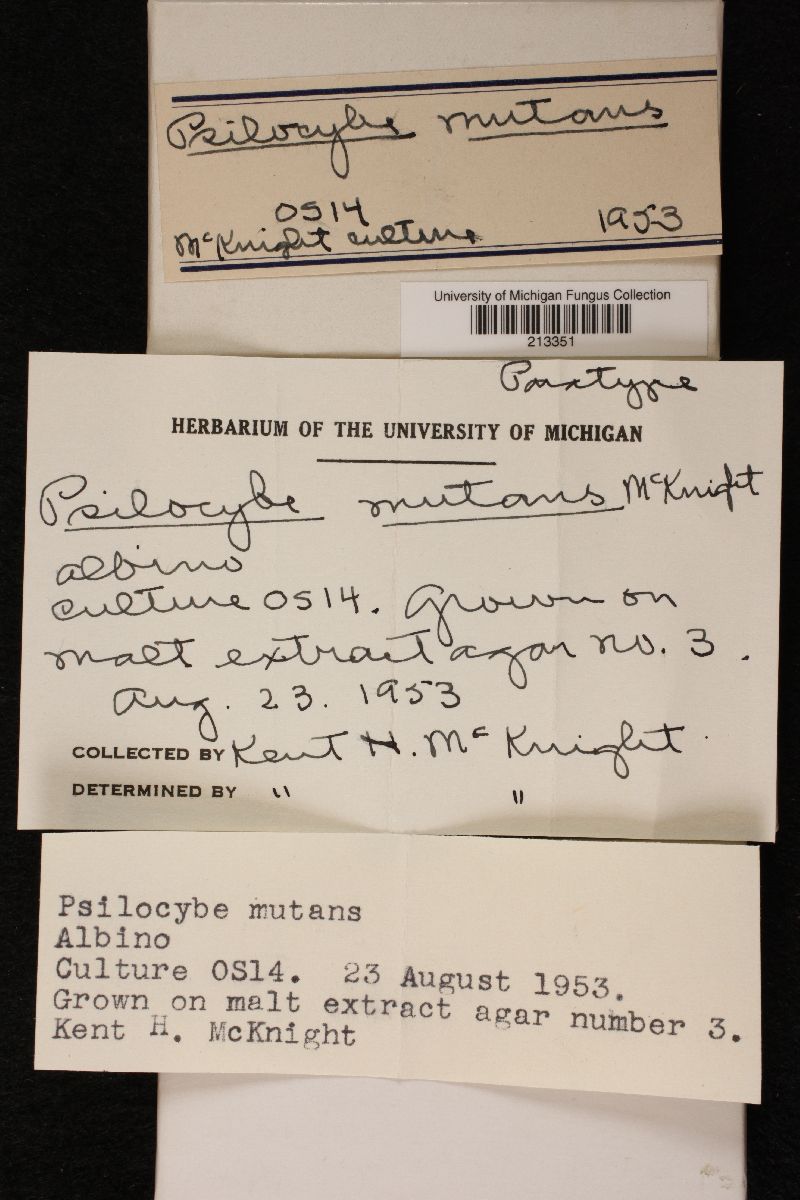 Psilocybe mutans
OS14
McKnight culture 1953
University of Michigan Fungus Collection
213351
Paratype
HERBARIUM OF THE UNIVERSITY OF MICHIGAN
Psilocybe mutans McKnight
albino
culture OS14. Grown on
malt extract agar no. 3.
Aug. 23. 1953
COLLECTED BY Kent H. McKnight
DETERMINED BY " "
Psilocybe mutans
Albino
Culture OS14. 23 August 1953.
Grown on malt extract agar number 3.
Kent H. McKnight